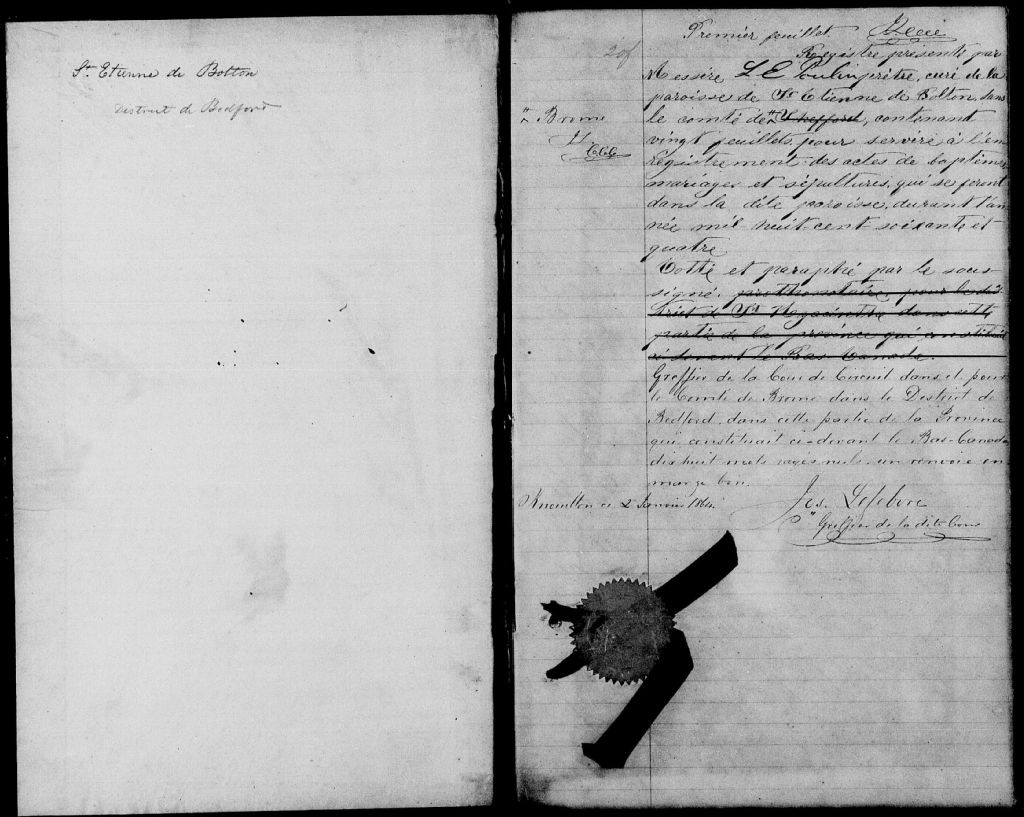 St. Etienne de Bolton
District de Bedford
Premier feuillet
20f
Registre présenté par
Messire L E Poulin prêtre, curé de la
paroisse de St Etienne de Bolton, dans
le comté de Shefford, contenant
Brome
vingt feuillets, pour servir à l'en
régistrement des actes de baptêmes
mariages et sépultures, qui se feront
dans la dite paroisse, durant l'an
née mil huit-cent-soixante et
quatre
Cotté et paraphé par le sous
signé, prothonotaire, pour le dis
trict de St Hyacinthe dans cette
partie de la province qui constituait
ci devant le Bas-Canada.
Greffier de la Cour de Circuit dans et pour
le Comté de Brome dans le District de
Bedford, dans cette partie de la Province
qui constituait ci-devant le Bas-Canada
dixhuit mots rayés nuls. un renvoie en
marge bon.
Knowlton ce 2 Janvier 1864.
Jos. Lefebvre
Greffier de la dite Cour